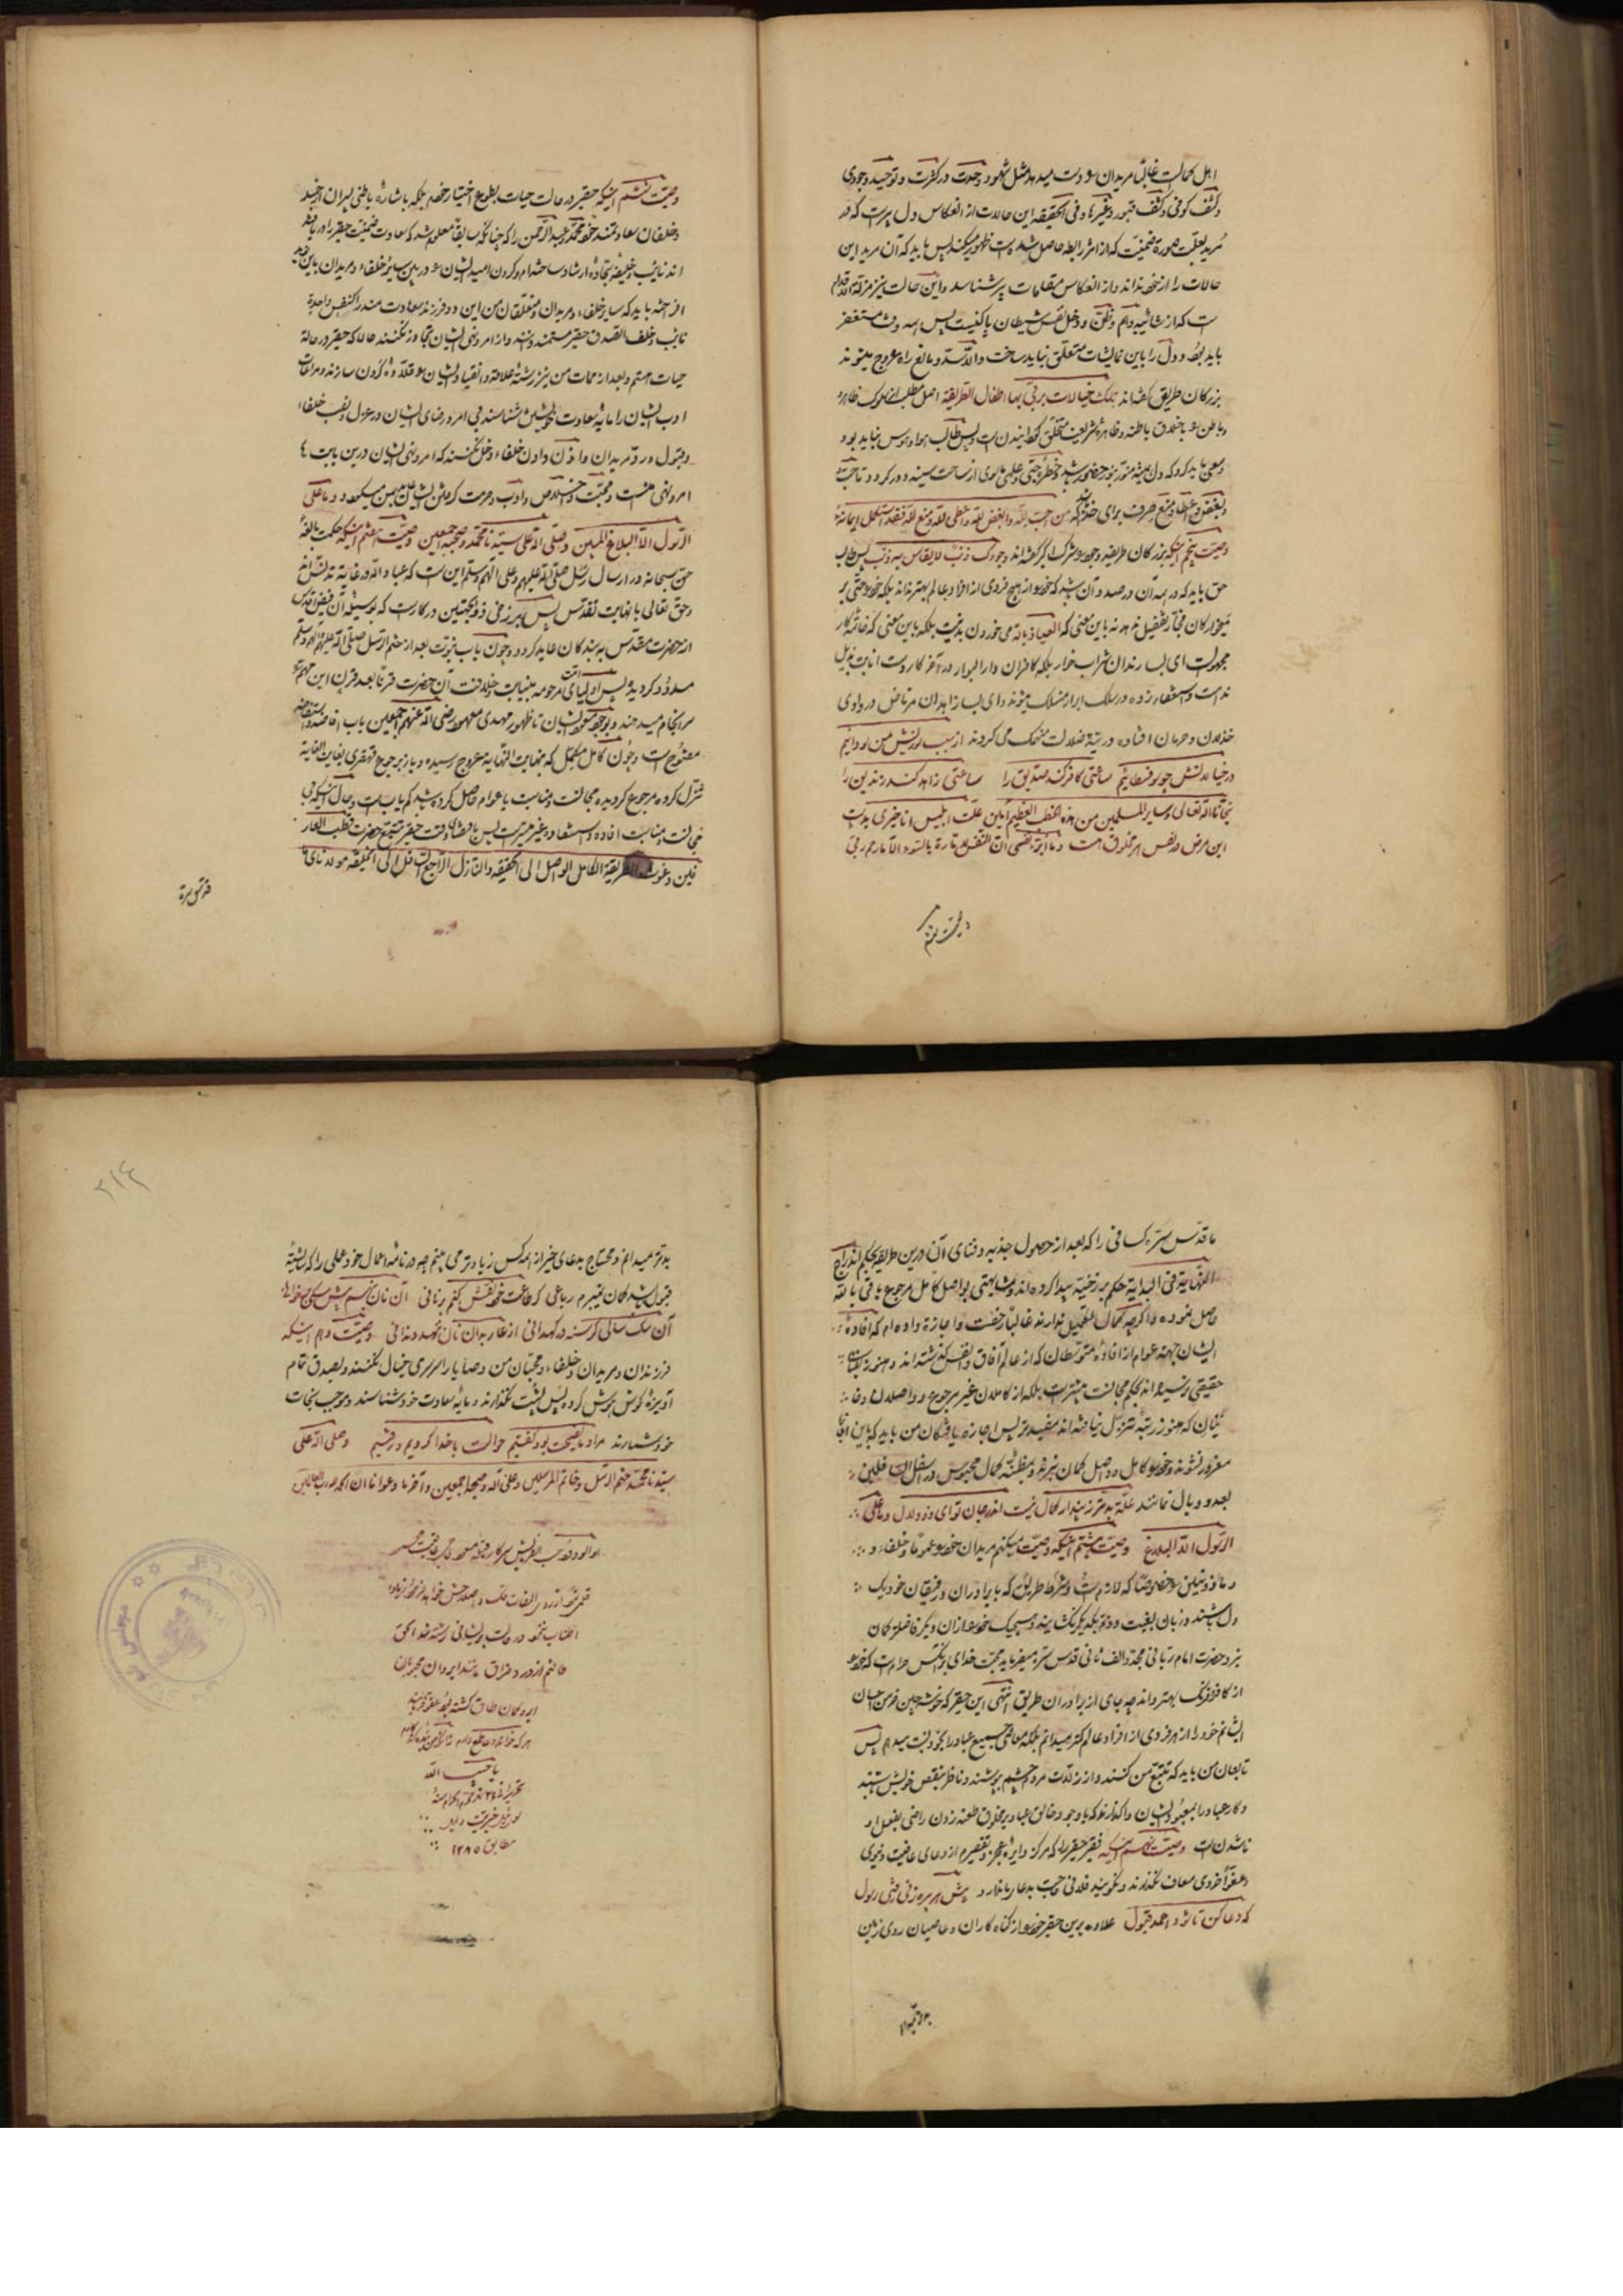 اهل کمالست غالبا مریدان را دست میدهد مثل شهود وحدت در کثرت و توحید وجودی
و کشف کونی و کشف قبور و غیرها و فی الحقیقه این حالات از انعکاس دل پیرست که در
مرید بعلت صورة ضمنیت که از اثر رابطه حاصل شده است ظهور میکند پس باید که آن مرید این
حالات را از خود نداند و از انعکاس مقامات پیر شناسد و این حالت نیز مزلة الاقدام
ست که از شائبه وهم و ظن و دخل نفس و شیطان پاک نیست پس
باید بود و دل را باین نمایشات متعلق نباید ساخت و الا سد و مانع راه عروج میشوند
بزرکان طریق کفته اند تلک خیالات یربی بها اطفال الطریقة اصل مطلب از سلوک ظاهر
و باطن را باخلاق باطنه و ظاهره شریعت متخلق کردانیدن است پس طالب هوا و هوس نباید بود
و سعی باید کرد که دل همیشه منور بنور حضور باشد و خطره و حب و علم ما سوی از ساحت سینه دور کردد و تا حب
و بغض و اعطا و منع صرف برای خدا که من احب لله و ابغض لله و اعطی لله و منع لله فقد استکمل ایمانه
وصیت پنجم اینکه بزرکان طریقه وجود را شرک اکبر کفته اند وجودک ذنب لا یقاس به ذنب پس طالب
حق باید که در همه آن در صدد آن باشد که خود را از هیچ فردی از افراد عالم بهتر نداند بلکه خود را حتی بر
میخوارکان مجاز تفضیل ندهد نه باین معنی که العیاذ بالله می خوردن بد نیست بلکه باین معنی که خاتمه کار
مجهولست ای بسا رندان شراب خوار بلکه کافران دار البوار در آخر کار دست انابت بذیل
ندامت و استغفار زده در سلک ابرار منسلک میشوند و ای بسا زاهدان مرتاض در وادی
خذلان و حرمان افتاده در تیه ضلالت منهمک می کردند
ساعتی کافر کند صدیق را ساعتی زاهد کند زندیق را
نجانا الله تعالی و سایر المسلمین من هذه الخطر العظیم آمین علت ابلیس انا خیری بدست
این مرض در نفس هر مخلوق هست و ما ابرئ نفسی ان النفس لامارة بالسوء الا ما رحم ربی
وصیت ششم
وصیت ششم اینکه حقیر در حالت حیات بطوع و اختیار خود بلکه باشاره باطنی پیران ارجمند
و خلفان سعادتمند خود محمد و عبد الرحمن را که چنانکه سابقا معلوم شد که سعادت ضمنیت حقیر را دریافته
اند نایب و خلیفه سجاده ارشاد ساخته ام
باید که سایر خلفاء و مریدان و متعلقان من این دو فرزند سعادت مند را کنفس واحدة
نایب و خلف الصدق حقیر مستمند دانند و از امر و نهی ایشان تجاوز نکنند حالا که حقیر در حالة
حیات هستم و بعد از ممات من نیز رشته علاقه و انقیاد ایشان را قلاده کردن سازند و مراعات
ادب ایشان را مایه سعادت خویش شناسند بی امر و رضای ایشان در عزل و نصب خلفاء
و قبول و رد مریدان و اذن دادن خلفاء دخل نکنند که امر و نهی ایشان درین بابت
امر و نهی منست و محبت و اخلاص و ادب و حرمت کردن ایشان بمن میکردد و ما علی
الرسول الا البلاغ المبین و صلی الله علی سیدنا محمد و صحبه اجمعین وصیت هفتم اینکه حکمت بالغه
حق سبحانه در ارسال رسل صلی الله علیهم و علی الهم و سلم این ست که عباد الله در غایة تدنس اند
و حق تعالی با نهایت تقدس پس برزخی ذو الجهتین در کارست که بوسیله آن فیض اقدس
از حضرت مقدس به بندکان عاید کردد و چون باب نبوت بعد از ختم الرسل صلی الله علیه و آله و سلم
مسدود کردیده پس اولیای امت مرحومه بنیابت خلافت آن حضرت قرنا بعد قرن این مهم را
سرانجام میدهند و بوجود ایشان تا ظهور مهدی معهود رضی الله عنهم اجمعین باب افاضه و استفاضه
مفتوح است و چون کامل مکمل که بنهایت النهایه عروج رسیده و باز برجوع قهقری بغایت الغایة
تنزل کرده مرجوع کردیده مجالست و مناسبت با عوام حاصل کرده باشد کم یاب است و حال آنکه بی
مجالست و مناسبت افاده و استفاده غیر میسرست پس باقتضای وقت حقیر بتبع حضرت قطب العار
فین و غوث الطریقة الکامل الواصل الی الحقیقه و التنازل الراجع الی الخلیقه مولانای
قدس سره
ما قدس سره کسانی را که بعد از حصول جذبه و فنای آن درین طریقه بحکم اندراج
النهایة فی البدایة حکم برزخیة پیدا کرده اند و مشابهتی بواصل کامل مرجوع باقی بالله
حاصل نموده و اکرچه کمال التکمیل ندارند غالبا رخصت و اجازة داده ام که افادهٔ
ایشان جهة عوام از افادهٔ متوسطان که از عالم آفاق و انفس کذشته اند و هنوز
حقیقی نرسیده اند بحکم مجالست بیشترست بلکه از کاملان غیر مرجوع و واصلان
که هنوز رتبه تنزل نیافته اند مفیدتر پس اجازه یافتکان من باید که باین
مغرور نشوند و خود را کامل و واصل کمان نبرند و بمظنه کمال محبوس در اسفل السافلین
بعد و وبال نمانند علة بدتر ز پندار کمال نیست اندر جان تو ای ذو دلال و ما علی
الرسول الا البلاغ وصیت هشتم اینکه وصیت میکنم مریدان خود را عموما و خلفاء و
و ماذونین را خصوصا که لازمست و شرط طریق که با برادران و رفیقان خود یک
دل باشند و زبان بغیبت و ذم یکدیکر نکشایند و هیچیک خود را از آن دیکر فاضلتر کمان
نبرد حضرت امام ربانی مجدد الف ثانی قدس سره میفرماید محبت خدای بر آنکس حرام ست که خود را
از کافر فرنک بهتر داند چه جای از برادران طریق انتهی این حقیر که خوشه چین خرمن احسان
ایشانم خود را از هر فردی از افراد عالم کمتر میدانم بلکه معاصی جمیع عباد را بخود نسبت میدهم پس
تابعان من باید که تتبع من کنند و از زلات مردم چشم بپوشند و ناظر بنقص خویش باشند
و کار عباد را بمعبود ایشان واکذارند که با وجود خالق عباد بر مخلوق طعنه زدن راضی بفعل او
ناشدن است وصیت نهم اینکه فقیر حقیر را که مرکز دایره عجز و تقصیرم از دعای عافیت دنیوی
و عفو اخروی معاف نکذارند و نکویند فلانی حاجت بدعای ما ندارد پیش هر پیره زنی رفتی رسول
که دعا کن تا شود احمد قبول علاوه برین حقیر خود را از کناه کاران و عاصیان روی زمین
۲۱۴
بدتر میدانم و محتاج بدعای خیر از همه کس زیادتر می بینم چه در نامه اعمال خود عملی را که شایسته
قبول باشد کمان نمیبرم رباعی
آن سک سالی کرسنه در کهدانی از عار بدان نان ننهد دندانی وصیت دهم اینکه
فرزندان و مریدان و خلفاء و محبان من وصایا را سرسری خیال نکنند و بصدق تمام
آویزه کوش هوش کرده پس پشت نکذارند و مایه سعادت خود شناسند و موجب نجات
خود شمارند مراد ما نصیحت بود و کفتیم حوالت با خدا کردیم و رفتیم و صلی الله علی
سیدنا محمد ختم الرسل و خاتم المرسلین و علی آله و صحبه اجمعین و آخر دعوانا ان الحمد لله رب العالمین
یا حبیب الله
مطابق ۱۲۸۵